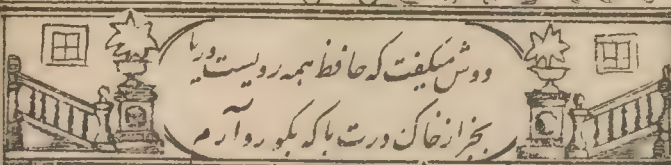 دوش میگفت که حافظ همه رویست و ریا
بجز از خاک درت با که بگو رو آرم